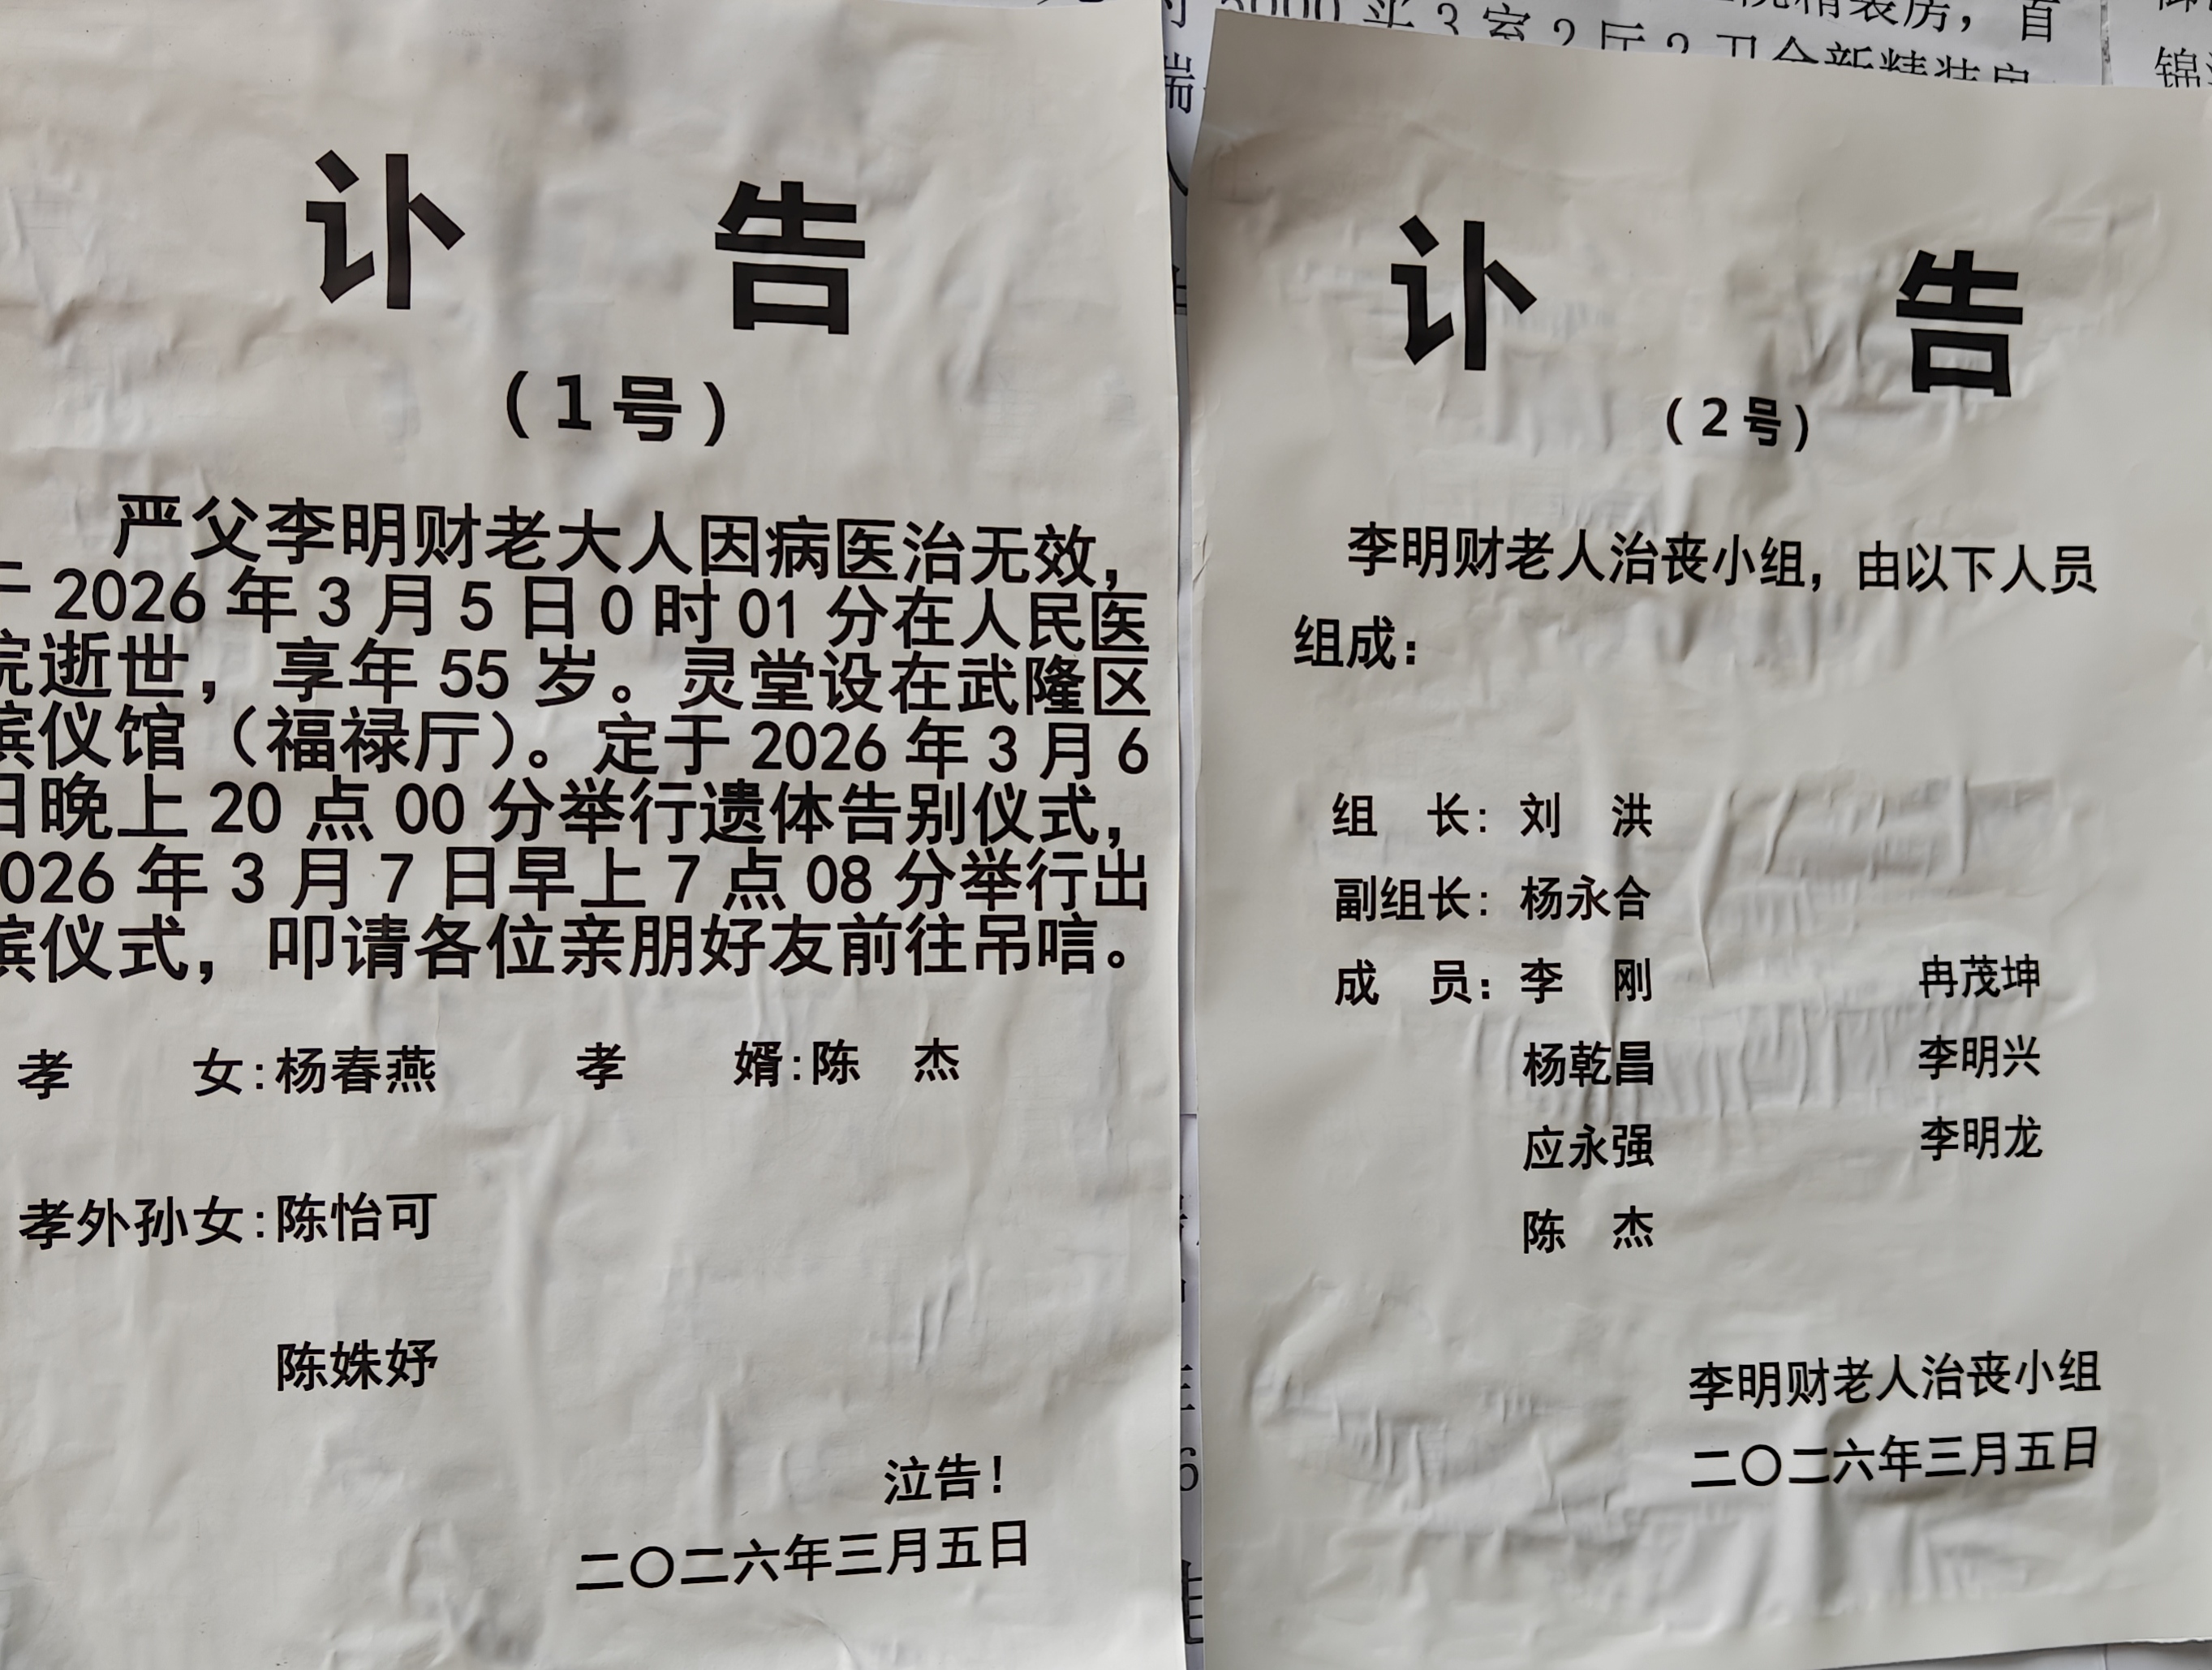 讣 告
(1号)
严父李明财老大人因病医治无效,
2026年3月5日0时01分在人民医
院逝世,享年55岁。灵堂设在武隆区
殡仪馆(福禄厅)。定于2026年3月6
日晚上20点00分举行遗体告别仪式,
026年3月7日早上7点08分举行出
殡仪式,叩请各位亲朋好友前往吊唁。
孝 女:杨春燕 孝 婿:陈 杰
孝外孙女:陈怡可
陈姝妤
泣告!
二〇二六年三月五日
讣 告
(2号)
李明财老人治丧小组,由以下人员
组成:
组 长:刘 洪
副组长:杨永合
成 员:李 刚 冉茂坤
杨乾昌 李明兴
应永强 李明龙
陈 杰
李明财老人治丧小组
二〇二六年三月五日
3室2厅2卫全新精装房
精装房,首
锦